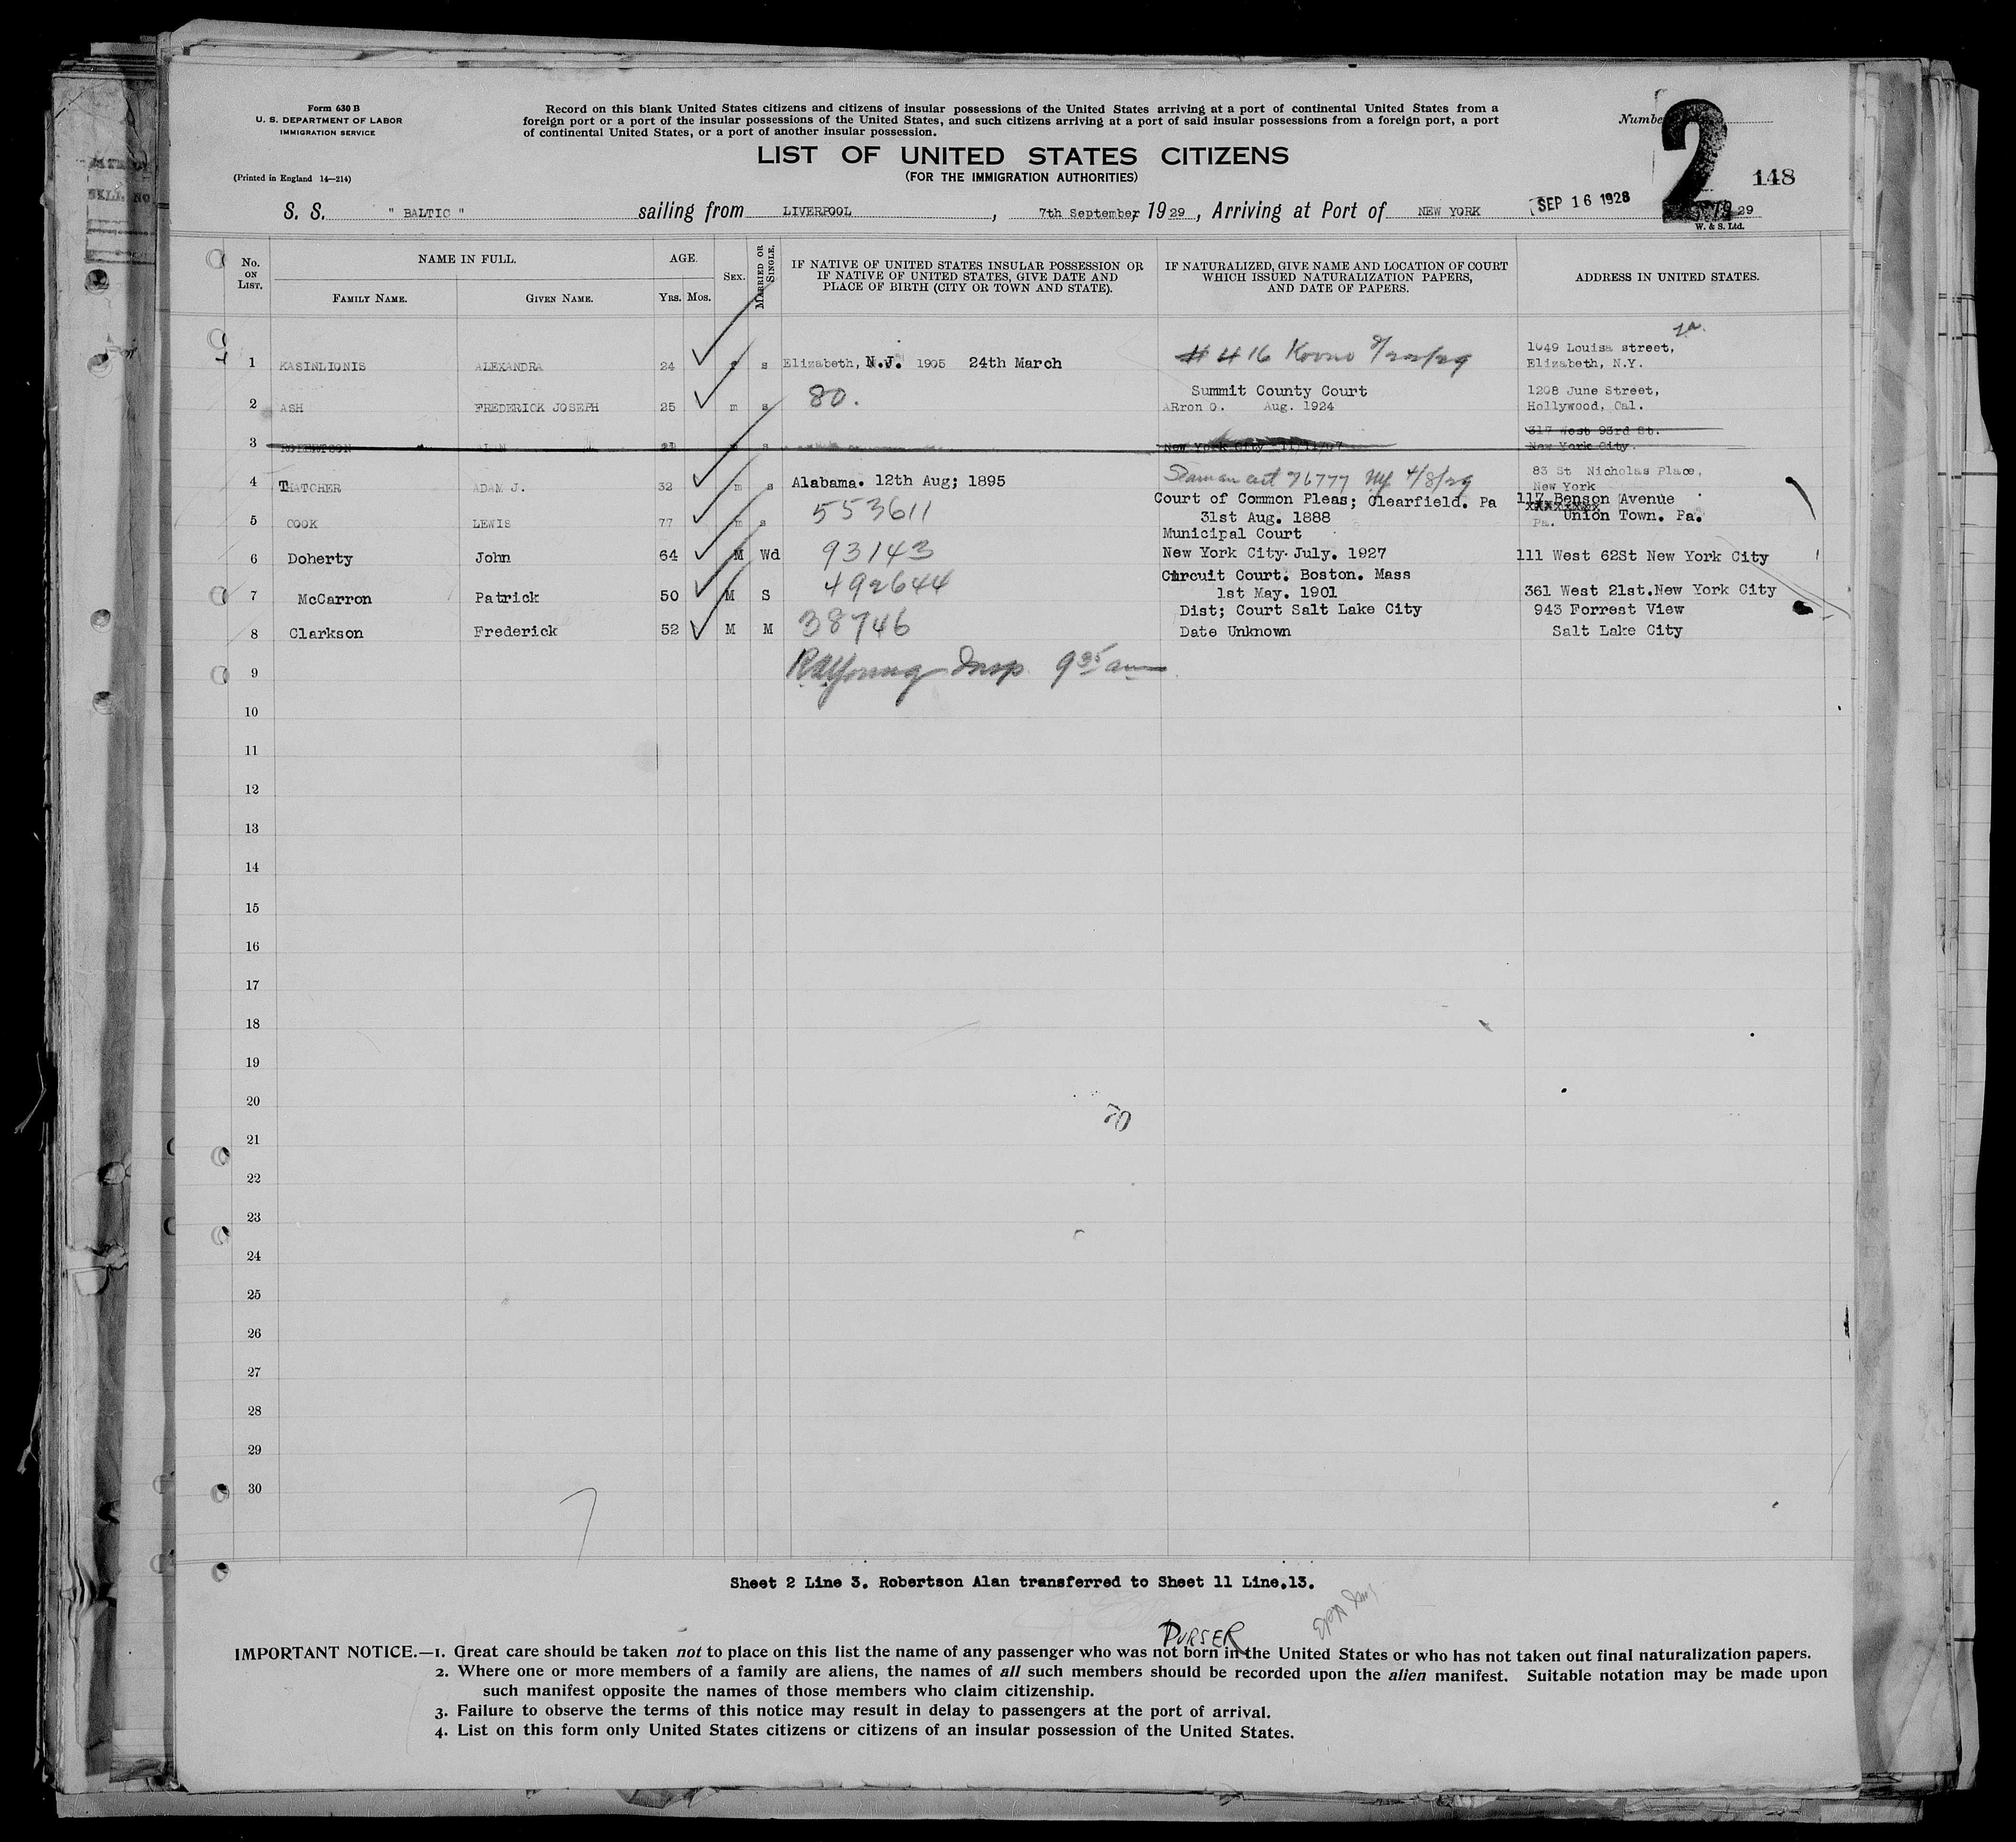 Form 630 B
U. S. DEPARTMENT OF LABOR
IMMIGRATION SERVICE
(Printed in England 14—214)
Record on this blank United States citizens and citizens of insular possessions of the United States arriving at a port of continental United States from a
foreign port or a port of the insular possessions of the United States, and such citizens arriving at a port of said insular possessions from a foreign port, a port
of continental United States, or a port of another insular possession.
LIST OF UNITED STATES CITIZENS
(FOR THE IMMIGRATION AUTHORITIES)
Number
2
148
S. S. " BALTIC " sailing from LIVERPOOL, 7th September, 1929, Arriving at Port of NEW YORK SEP 16 1928 29
W. & S. Ltd.
No. ON LIST.
NAME IN FULL.
FAMILY NAME. GIVEN NAME.
AGE.
Yrs. Mos.
SEX.
MARRIED OR SINGLE.
IF NATIVE OF UNITED STATES INSULAR POSSESSION OR
IF NATIVE OF UNITED STATES, GIVE DATE AND
PLACE OF BIRTH (CITY OR TOWN AND STATE).
IF NATURALIZED, GIVE NAME AND LOCATION OF COURT
WHICH ISSUED NATURALIZATION PAPERS,
AND DATE OF PAPERS.
ADDRESS IN UNITED STATES.
1 KASINLIONIS ALEXANDRA 24 f s Elizabeth, N.J. 1905 24th March # 416 Kovno 1049 Louisa street,
Elizabeth, N.Y.
2 ASH FREDERICK JOSEPH 25 m s 80. Summit County Court
ARron O. Aug. 1924 1208 June Street,
Hollywood, Cal.
3 ROBERTSON ALAN 21 m s New York City 317 West 93rd St.
New York City.
4 THATCHER ADAM J. 32 m s Alabama. 12th Aug; 1895 Seaman cert 76777 NY 4/8/29 83 St Nicholas Place,
New York
5 COOK LEWIS 77 m s 553611 Court of Common Pleas; Clearfield. Pa
31st Aug. 1888 117 Benson Avenue
Pa. Union Town. Pa.
6 Doherty John 64 M Wd 93143 Municipal Court
New York City. July. 1927 111 West 62St New York City
7 McCarron Patrick 50 M S 492644 Circuit Court. Boston. Mass
1st May. 1901 361 West 21st.New York City
8 Clarkson Frederick 52 M M 38746 Dist; Court Salt Lake City
Date Unknown 943 Forrest View
Salt Lake City
9 Young Insp. 9 35 am
10
11
12
13
14
15
16
17
18
19
20
21
22
23
24
25
26
27
28
29
30
Sheet 2 Line 3. Robertson Alan transferred to Sheet 11 Line.13.
PURSER
IMPORTANT NOTICE.—1. Great care should be taken not to place on this list the name of any passenger who was not born in the United States or who has not taken out final naturalization papers.
2. Where one or more members of a family are aliens, the names of all such members should be recorded upon the alien manifest. Suitable notation may be made upon
such manifest opposite the names of those members who claim citizenship.
3. Failure to observe the terms of this notice may result in delay to passengers at the port of arrival.
4. List on this form only United States citizens or citizens of an insular possession of the United States.